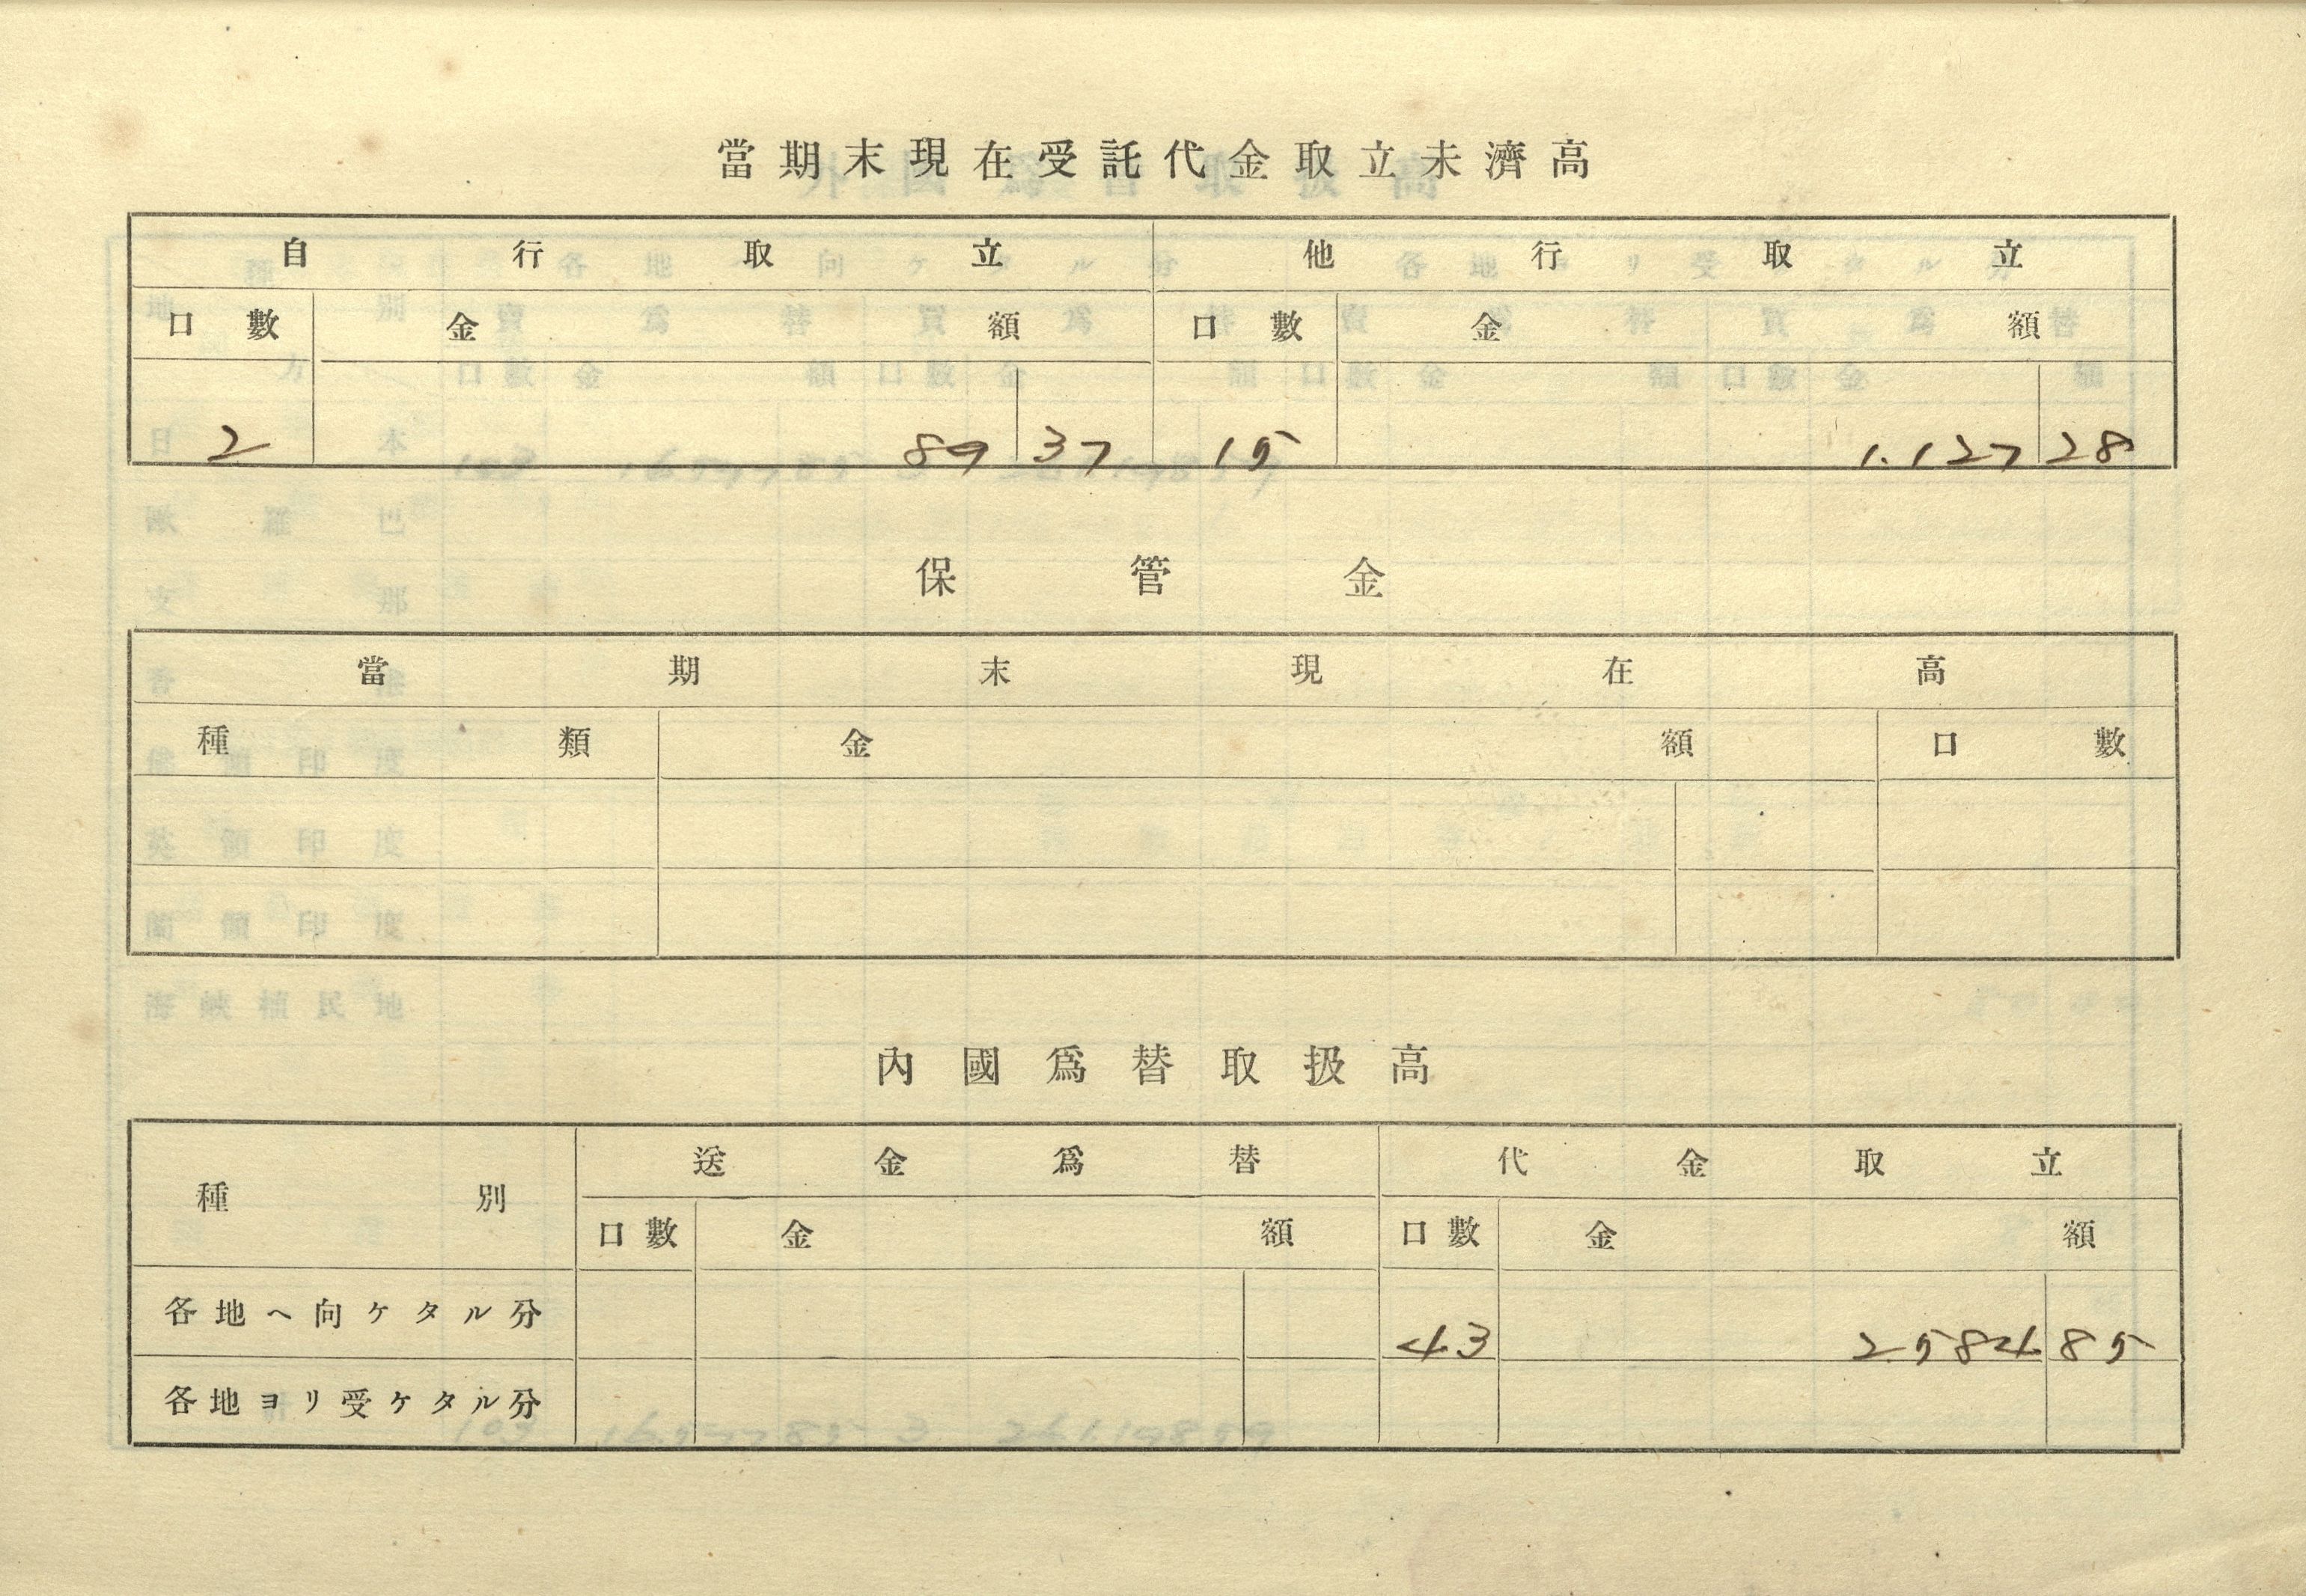 當期末現在受託代金取立未濟高
自行取立 他行取立
口數 金額 口數 金額
2 89 37 15 1.127 28
保管金
當期末現在高
種類 金額 口數
內國爲替取扱高
種別 送金爲替 代金取立
口數 金額 口數 金額
各地ヘ向ケタル分 43 2.584 85
各地ヨリ受ケタル分